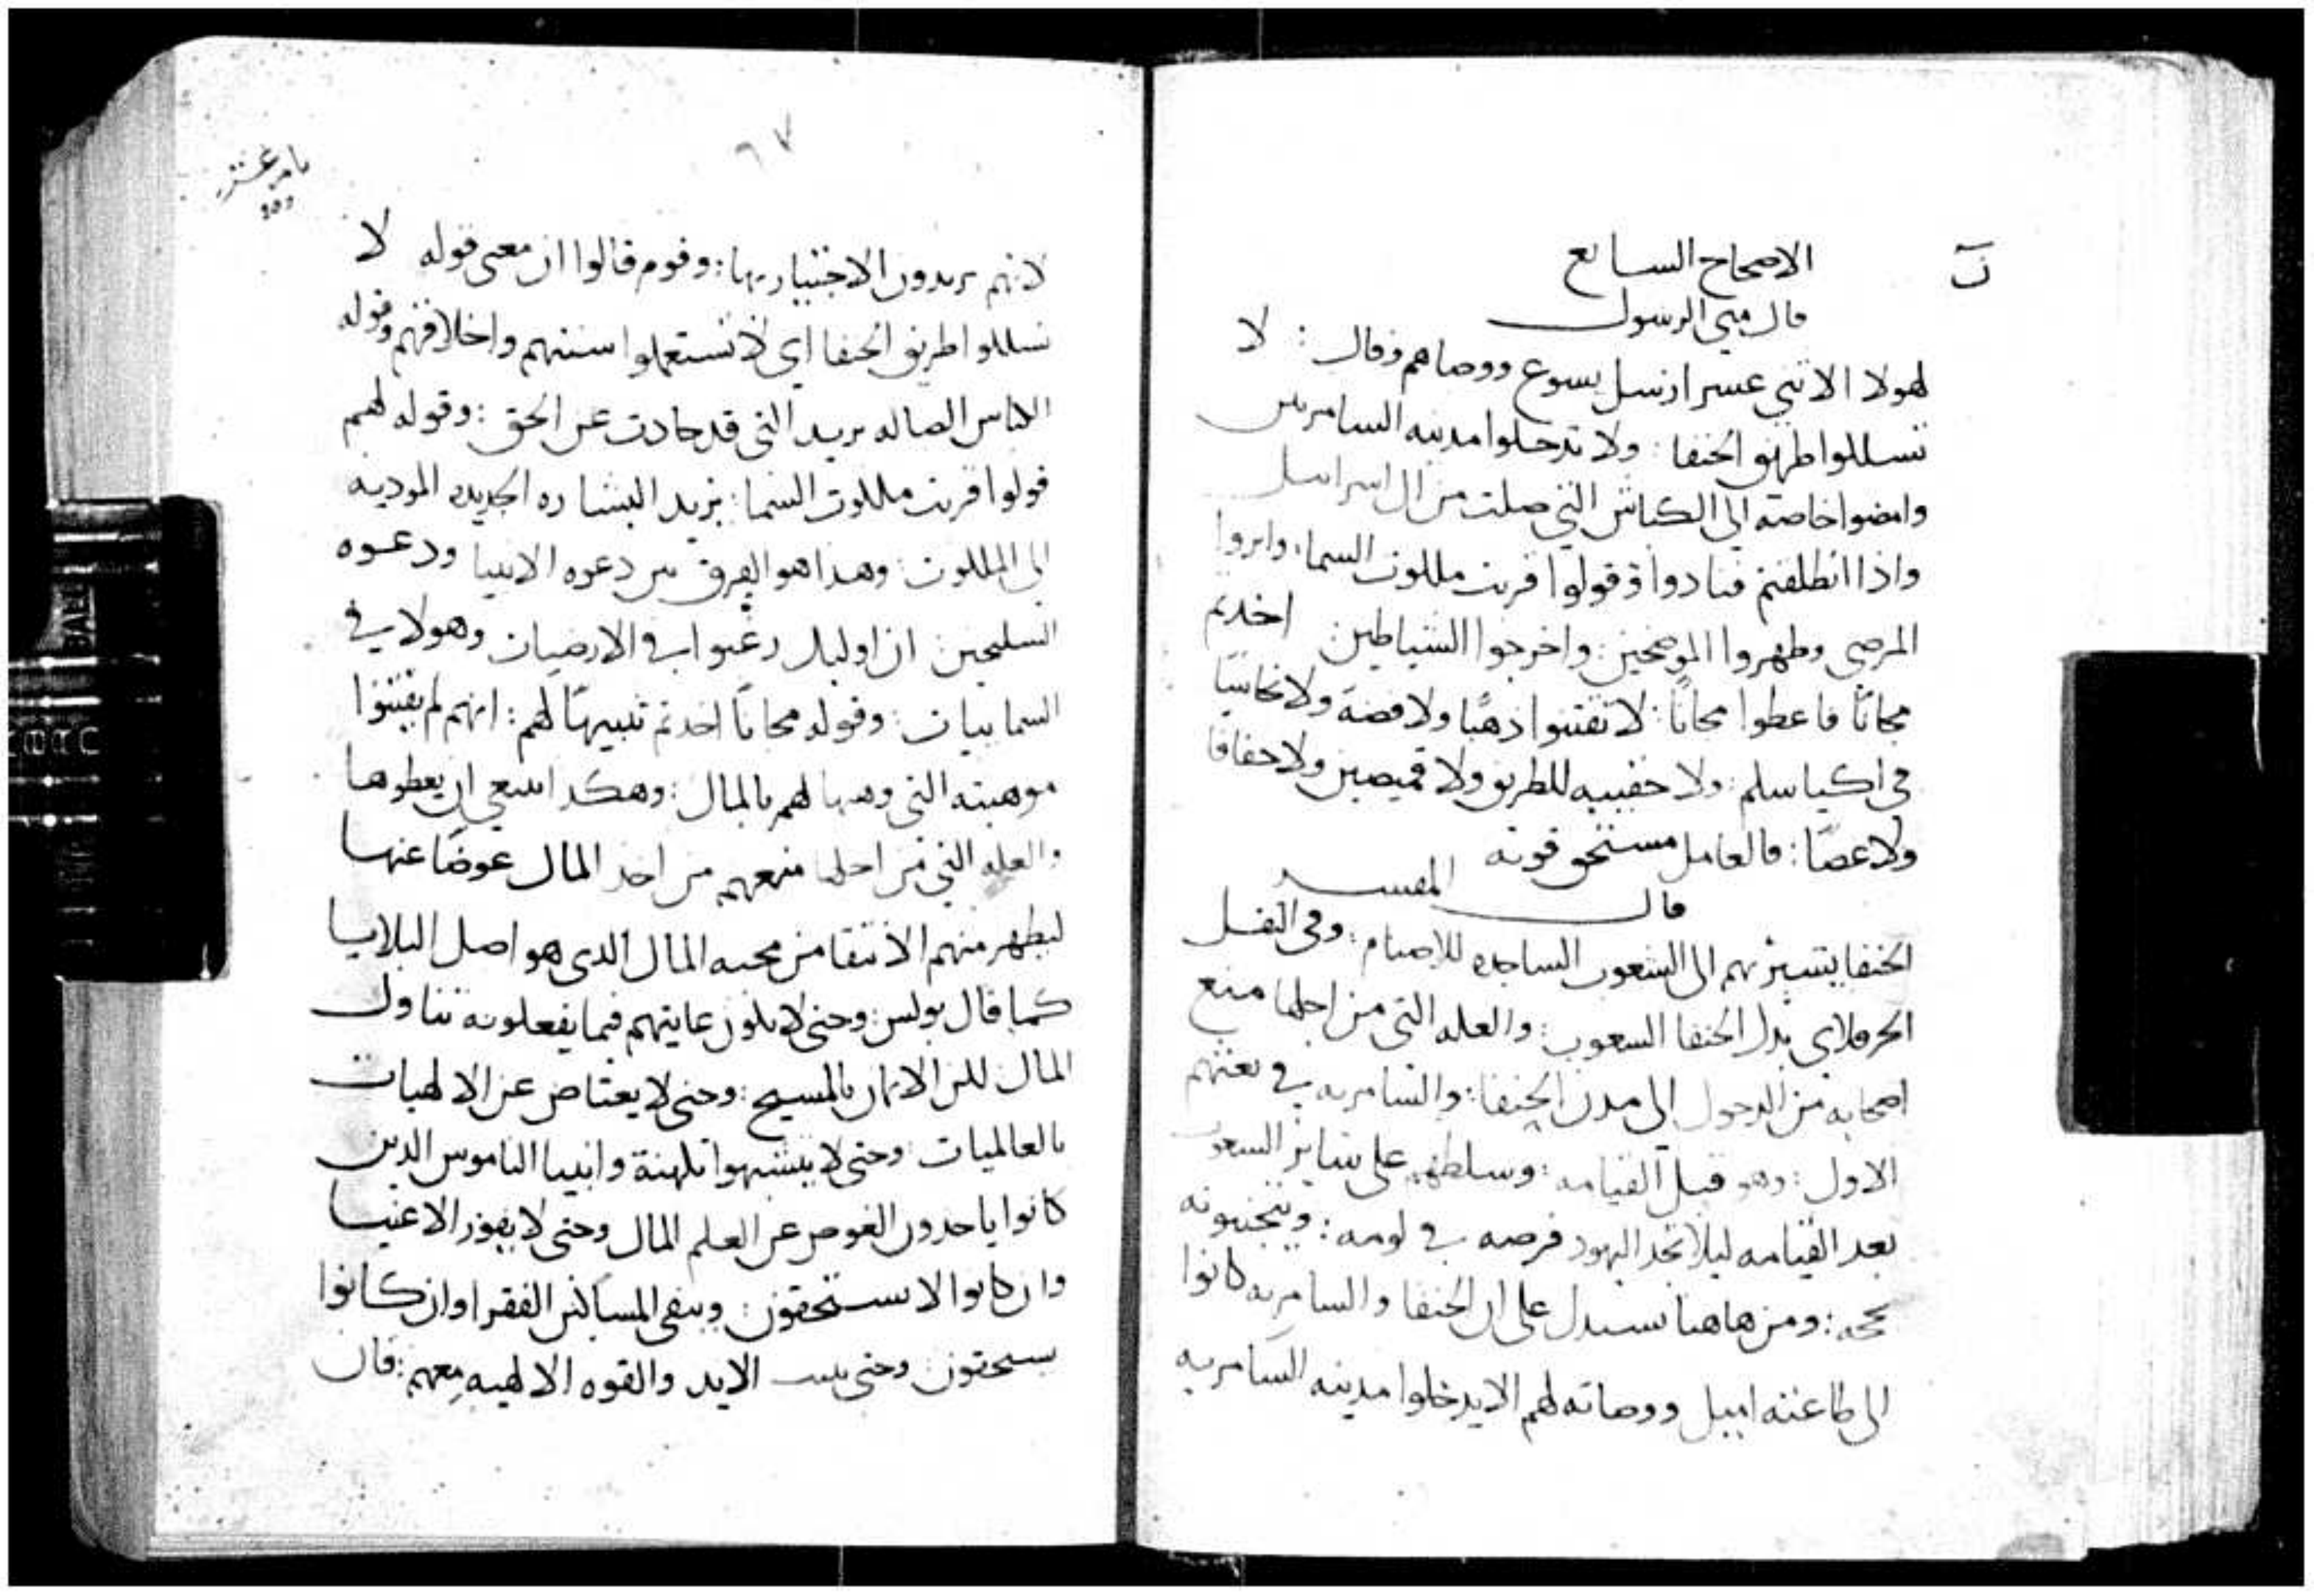 الاصحاح السابع
قال متى الرسول
لهولا الاثني عشر ارسل يسوع ووصاهم وقال : لا
تسللوا طريق الحنفا : ولا تدخلوا مدينه السامريين
وامضوا خاصة الى الكباش التي ضلت من ال اسراييل
واذا انطلقتم فنادوا وقولوا قربت مللوت السما : وابروا
المرضى وطهروا الموضحين : واخرجوا الشياطين اخدتم
مجانًا فاعطوا مجانًا : لا تقتنوا ذهبًا ولا فضة ولا نحاسًا
في اكياسلم : ولا حقيبه للطريق ولا قميصين ولا خفافًا
ولا عصًا : فالعامل مستحق قوته
قال المفسر
الحنفا يشير بهم الى الشعوب الساجده للاصنام : وفي النقل
الحرقلاي بدل الحنفا الشعوب : والعله التي من اجلها منع
اصحابه من الدخول الى مدن الحنفا : والسامريه في بعثتهم
الاول : وهو قبل القيامه : وسلطهم على ساير الشعوب
بعد القيامه ليلا تجد اليهود فرصه في لومه : ويتجنبونه
بحجه : ومن هاهنا يستدل على ان الحنفا والسامريه كانوا
الى طاعته اميل ووصاته لهم الا يدخلوا مدينه السامريه
٦٧
لانهم يريدون الاختبار بها : وقوم قالوا ان معنى قوله لا
تسللوا طريق الحنفا اي لا تستعملوا سنتهم واخلاقهم وقوله
الكباش الضاله يريد التي قد حادت عن الحق : وقوله لهم
قولوا قربت مللوت السما : يريد البشاره الجديده الموديه
الى المللوت : وهذا هو الفرق بين دعوه الانبيا ودعوه
السليحين ان اوليك رغبوا في الارضيات وهولاي في
السماييات : وقوله مجانًا اخدتم تنبيهًا لهم : انهم لم يقتنوا
موهبته التي وهبها لهم بالمال : وهكدا ينبغي ان يعطوها
والعله التي من اجلها منعهم من اخد المال عوضًا عنها
ليطهر منهم الانتقا من محبه المال الدى هو اصل البلايا
كما قال بولس : وحتى لا تلون غايتهم فيما يفعلونه تناول
المال للن الايمان بالمسيح : وحتى لا يعتاض عن الالهيات
بالعالميات : وحتى لا يتشبهوا بلهنة وانبيا الناموس الدين
كانوا ياخدون العوض عن العلم المال وحتى لا يفوز الاغنيا
وان كانوا لا يستحقون : ويبقى المساكين الفقرا وان كانوا
يستحقون : وحتى يثبت الايد والقوه الالهيه معهم : فان